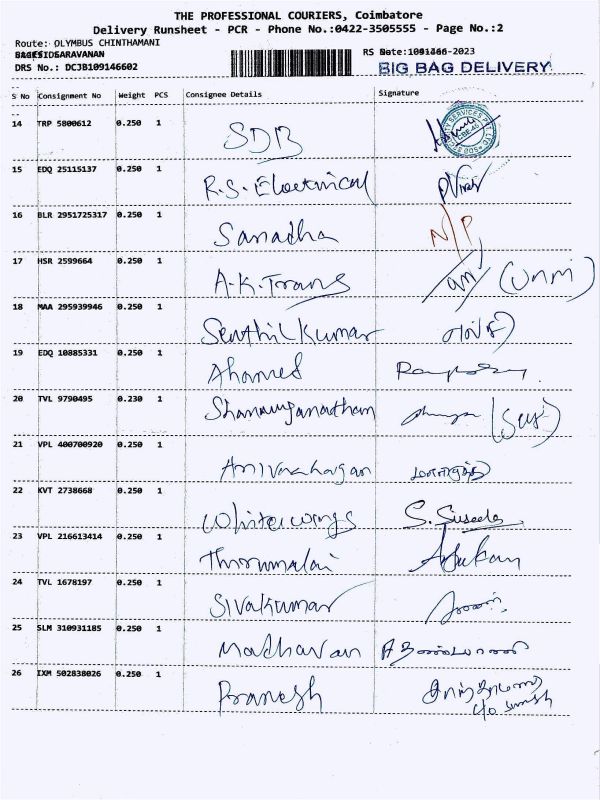 THE PROFESSIONAL COURIERS, Coimbatore
Delivery Runsheet - PCR - Phone No.:0422-3505555 - Page No.:2
Route: OLYMBUS CHINTHAMANI
RS Date:
-2023
SARAVANAN
DRS No.: DCJB109146602
BIG BAG DELIVERY
S No Consignment No Weight PCS Consignee Details Signature
14 TRP 5800612 0.250 1 SDB
15 EDQ 25115137 0.250 1 R.S. Electrical
16 BLR 2951725317 0.250 1 Sanadha N/P
17 HSR 2599664 0.250 1 A.K. Trans
18 MAA 295939946 0.250 1 Senthil Kumar
19 EDQ 10885331 0.250 1 Ahamed
20 TVL 9790495 0.230 1 Shanmuganatham
21 VPL 400700920 0.250 1
22 KVT 2738668 0.250 1 White wings S. Suseela
23 VPL 216613414 0.250 1 Thirumalai
24 TVL 1678197 0.250 1 Sivakumar
25 SLM 310931185 0.250 1 Madhavan
26 IXM 502838026 0.250 1 Pranesh
c/o